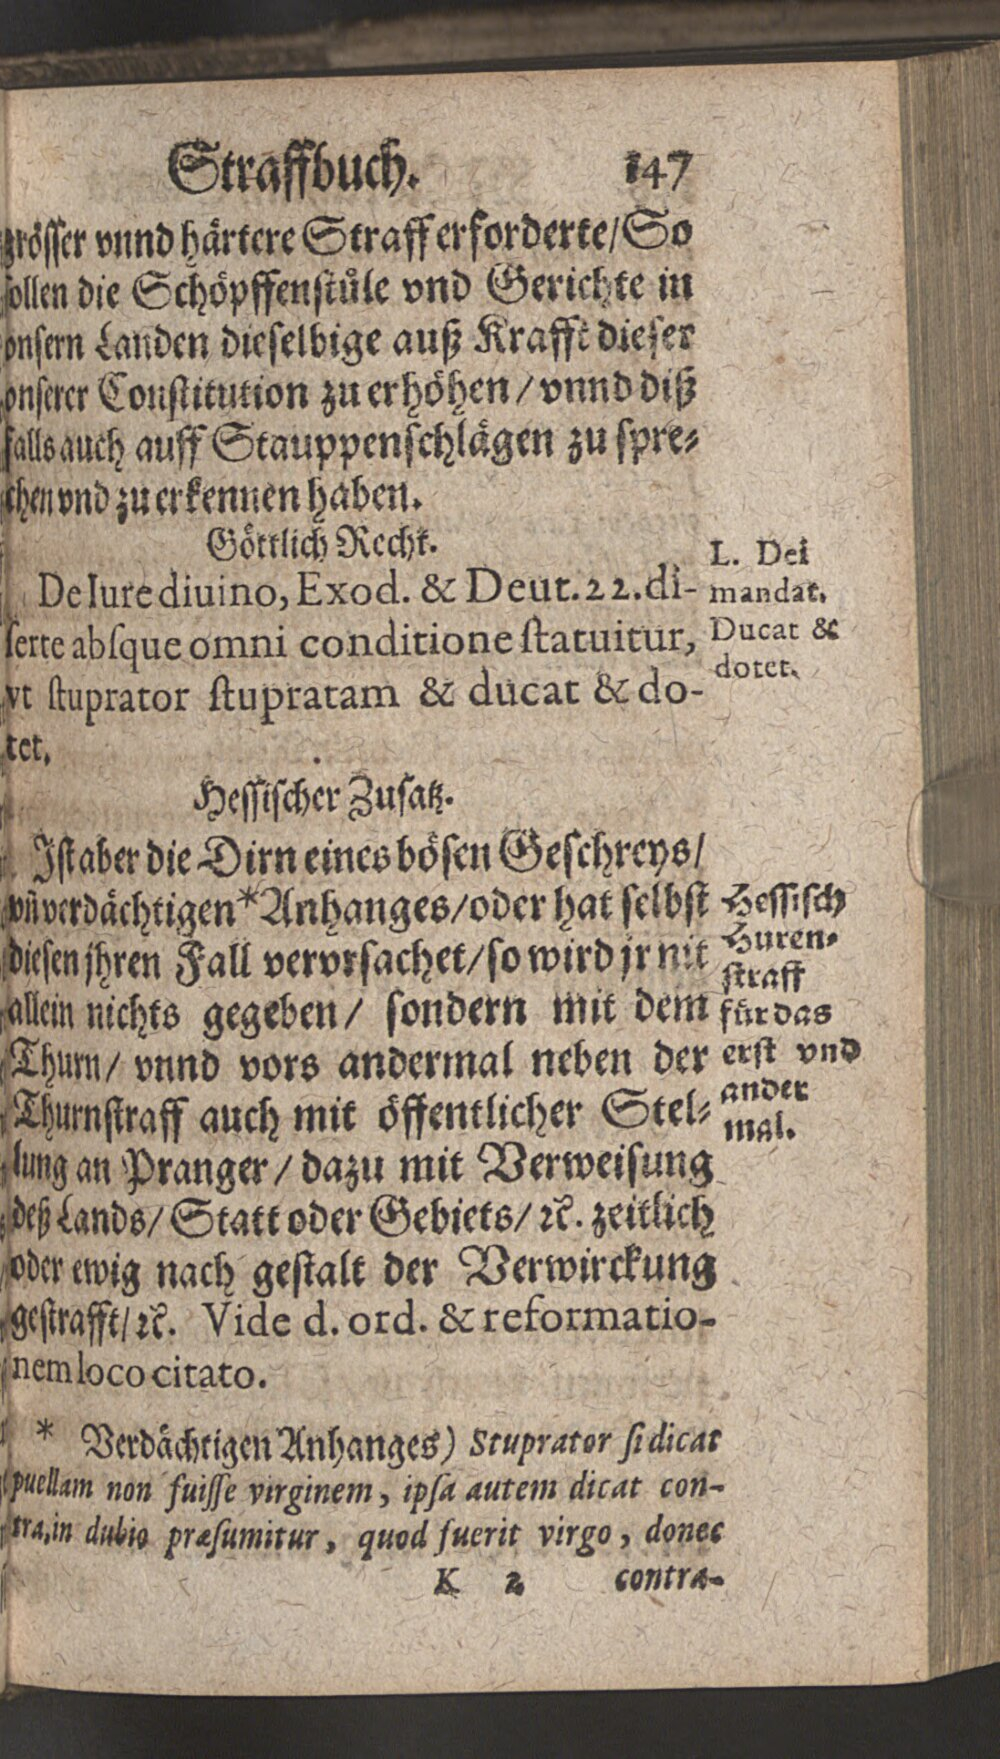 Straffbuch. 147
grösser vnnd härtere Straff erforderte/ So
sollen die Schöpffenstůle vnd Gerichte in
vnsern Landen dieselbige auß Krafft dieser
vnserer Constitution zu erhöhen/ vnnd diß
falls auch auff Stauppenschlägen zu spre-
chen vnd zu erkennen haben.
Göttlich Recht.
De Iure diuino, Exod. & Deut. 22. di-
ſerte abſque omni conditione ſtatuitur,
vt ſtuprator ſtupratam & ducat & do-
tet.
L. Dei
mandat.
Ducat &
dotet.
Hessischer Zusatz.
Ist aber die Dirn eines bösen Geschreys/
vñ verdächtigen* Anhanges/ oder hat selbst
diesen jhren Fall vervrsachet/ so wird jr nit
allein nichts gegeben/ sondern mit dem
Thurn/ vnnd vors andermal neben der
Thurnstraff auch mit öffentlicher Stel-
lung an Pranger/ dazu mit Verweisung
deß Lands/ Statt oder Gebiets/ ꝛc. zeitlich
oder ewig nach gestalt der Verwirckung
gestrafft/ ꝛc. Vide d. ord. & reformatio-
nem loco citato.
Hessisch
Huren-
straff
für das
erst vnd
ander
mal.
* Verdächtigen Anhanges) Stuprator ſi dicat
puellam non fuiſſe virginem, ipſa autem dicat con-
tra, in dubio præſumitur, quod fuerit virgo, donec
K 2 contra-